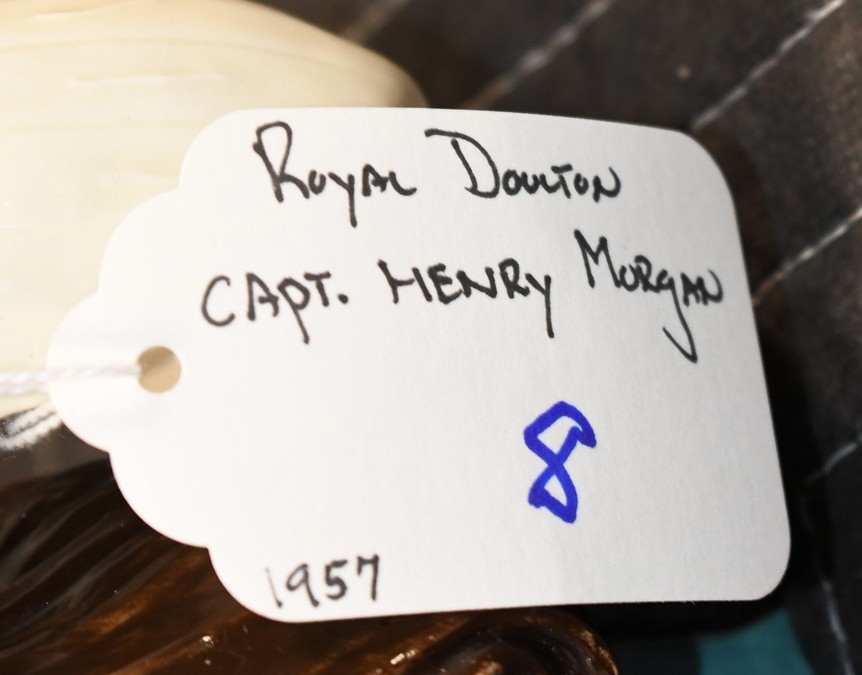 Royal Doulton
Capt. Henry Morgan
8
1957